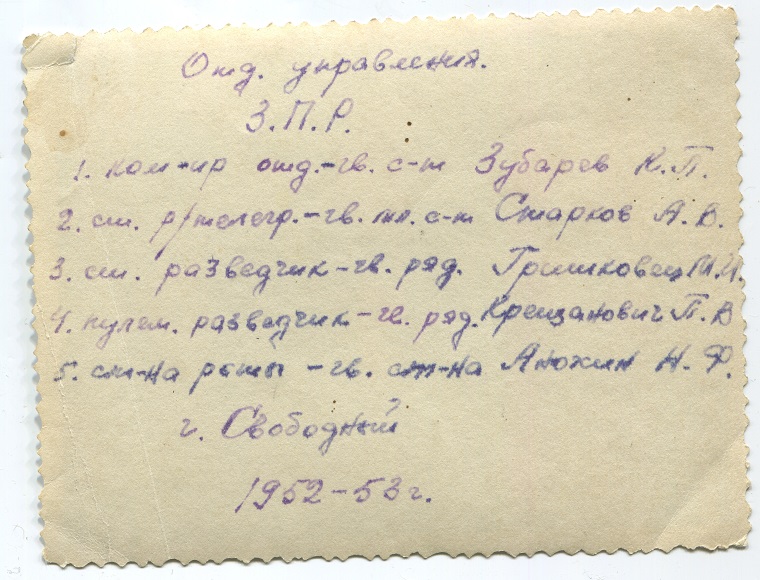 Отд. управления.
З.П.Р.
1. ком-ир отд.-гв. с-т Зубарев К.П.
2. ст. р/телегр.-гв. мл. с-т Старков А.В.
3. ст. разведчик-гв. ряд. Гришковец М.И.
4. пулем. разведчик-гв. ряд. Крещанович П.В
5. ст-на роты -гв. ст-на Анохин Н.Ф.
г. Свободный
1952-53г.